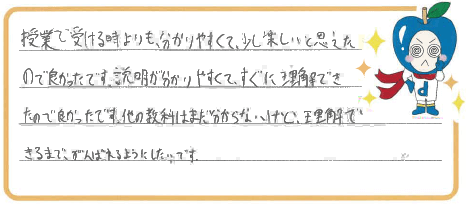 授業で受ける時よりも、分かりやすくて、少し楽しいと思えた
ので良かったです。説明が分かりやすくて、すぐに理解でき
たので良かったです。他の教科はまだ分からないけど、理解で
きるまで、がんばれるようにしたいです。
d